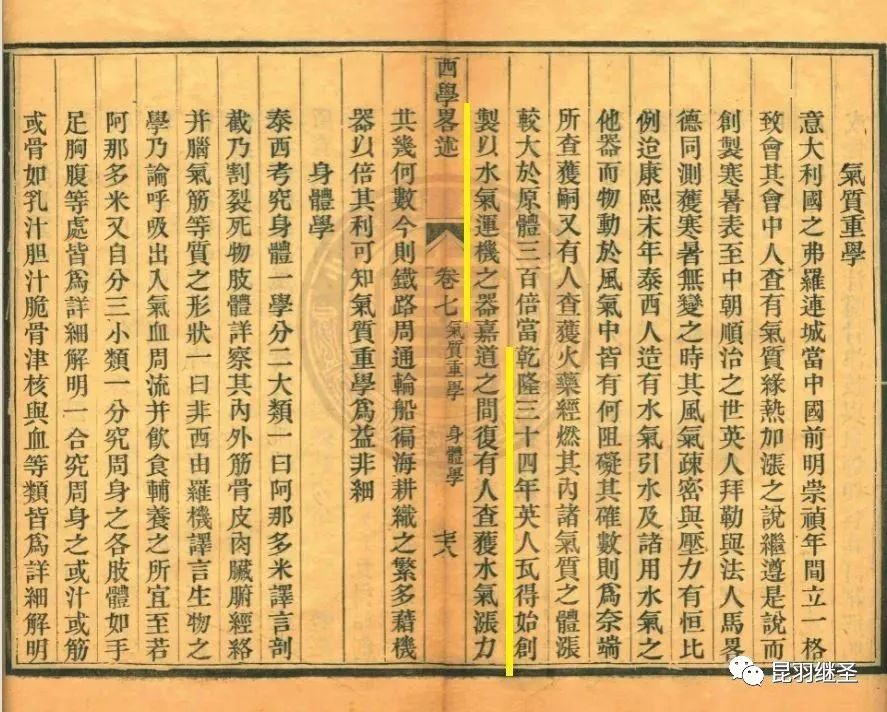 氣質重學
意大利國之弗羅連城當中國前明崇禎年間立一格
致會其會中人查有氣質緣熱加漲之說繼遵是說而
創製寒暑表至中朝順治之世英人拜勒與法人馬畧
德同測獲寒暑無變之時其風氣疎密與壓力有恒比
例迨康熙末年泰西人造有水氣引水及諸用水氣之
他器而物動於風氣中皆有何阻礙其確數則爲奈端
所查獲嗣又有人查獲火藥經燃其內諸氣質之體漲
較大於原體三百倍當乾隆三十四年英人瓦得始創
製以水氣運機之器嘉道之間復有人查獲水氣漲力
西學畧述 卷七 氣質重學 身體學
其幾何數今則鐵路周通輪船徧海耕織之繁多藉機
器以倍其利可知氣質重學爲益非細
身體學
泰西考究身體一學分二大類一曰阿那多米譯言剖
截乃割裂死物肢體詳察其內外筋骨皮肉臟腑經絡
并腦氣筋等質之形狀一曰非西由羅機譯言生物之
學乃論呼吸出入氣血周流并飲食輔養之所宜至若
阿那多米又自分三小類一分究周身之各肢體如手
足胸腹等處皆爲詳細解明一合究周身之或汁或筋
或骨如乳汁胆汁脆骨津核與血等類皆爲詳細解明
昆羽继圣